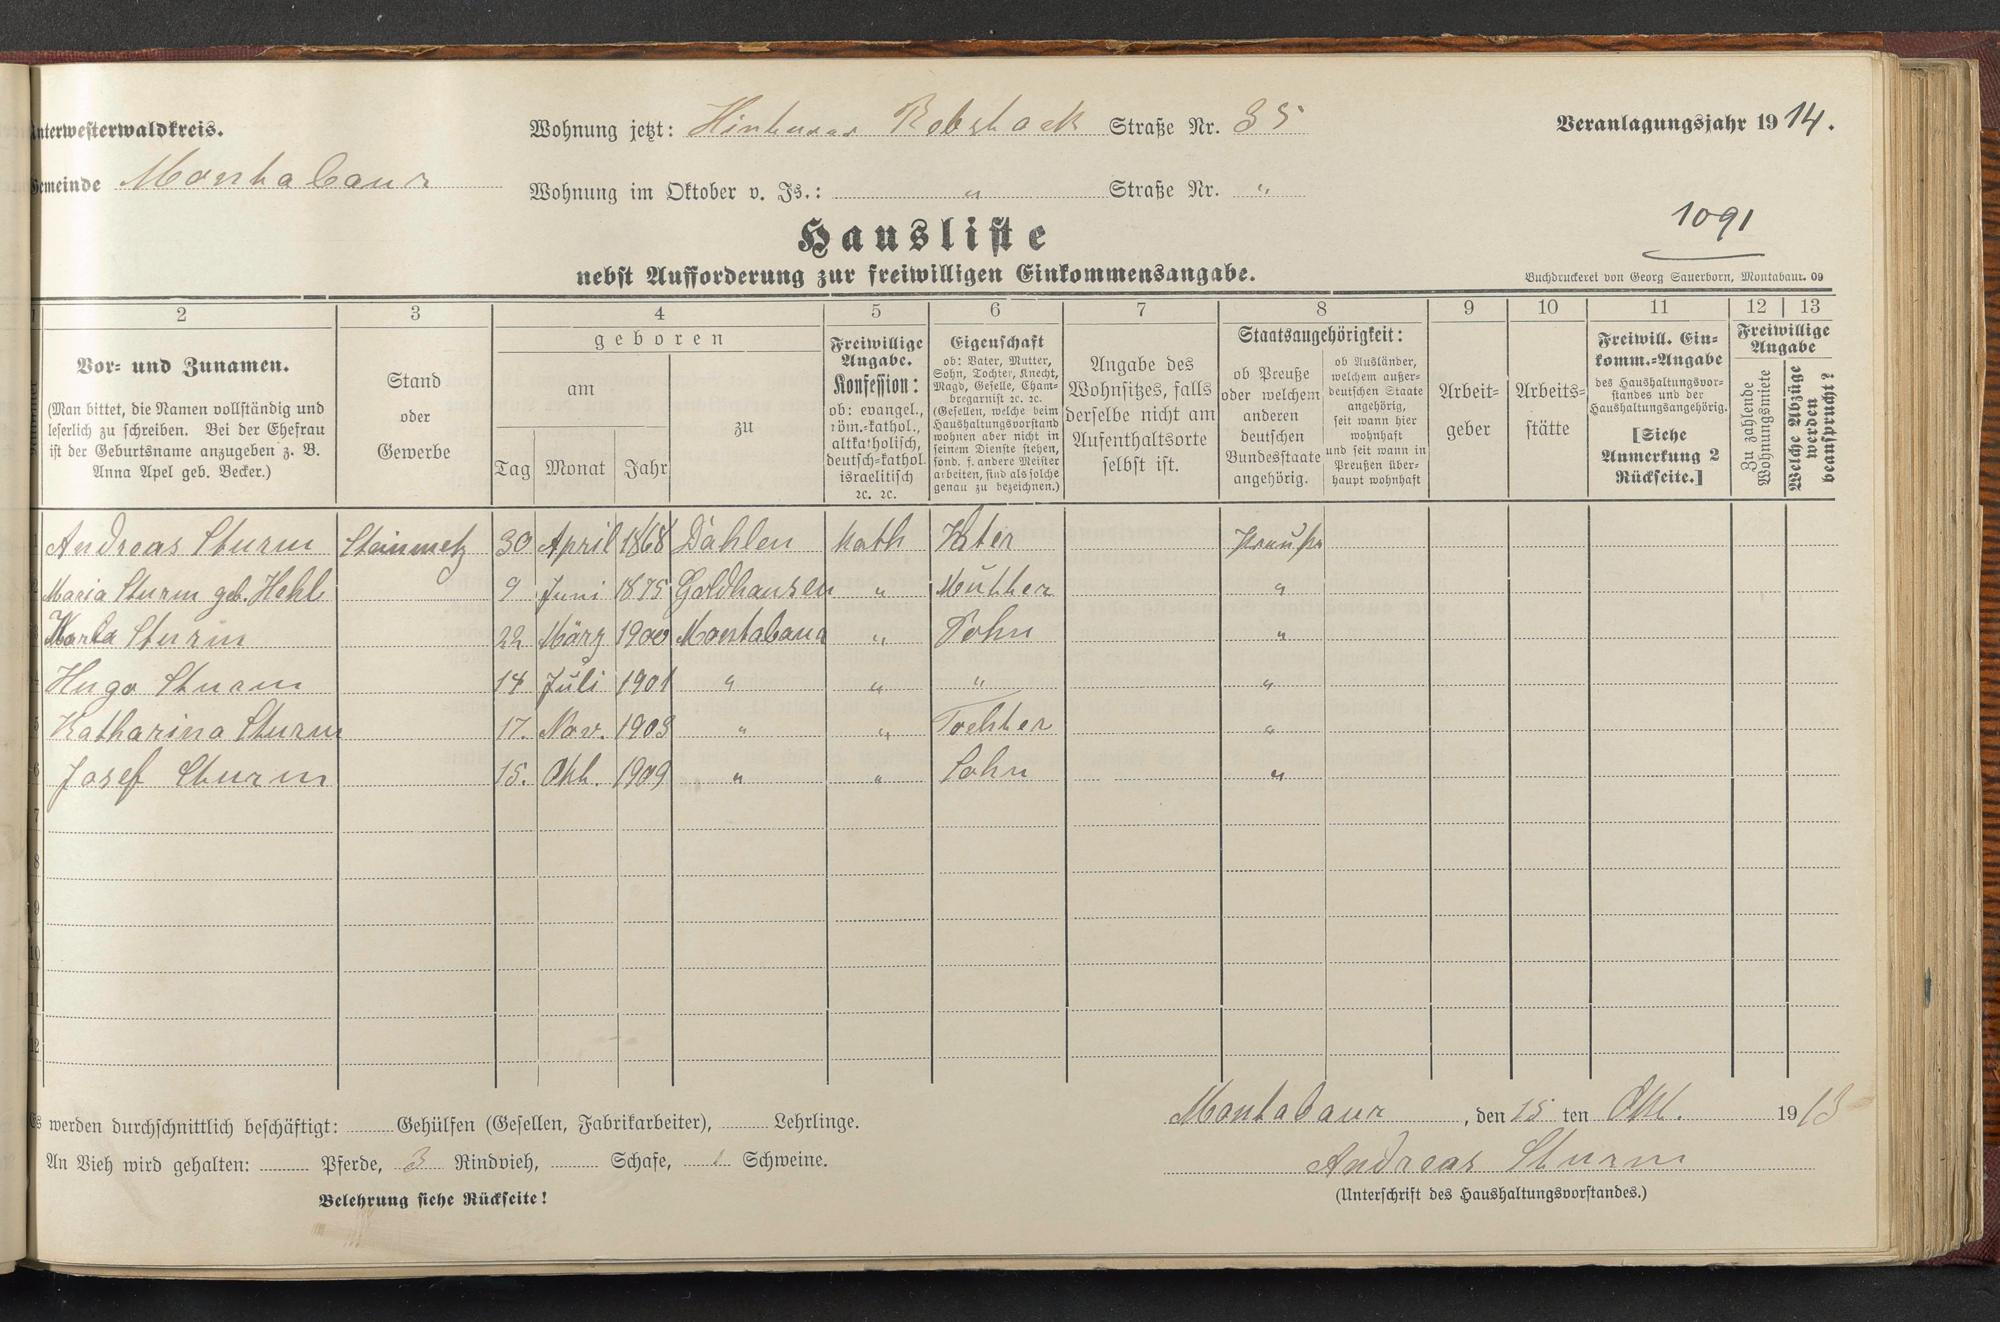 Unterwesterwaldkreis.
Wohnung jetzt: Hinterer Rebstock Straße Nr. 35
Veranlagungsjahr 1914.
Gemeinde Montabaur
Wohnung im Oktober v. Js.: " Straße Nr. "
1091
Hausliste
nebst Aufforderung zur freiwilligen Einkommensangabe.
Buchdruckerei von Georg Sauerborn, Montabaur. 09
1 2 3 4 5 6 7 8 9 10 11 12 13
Vor- und Zunamen.
(Man bittet, die Namen vollständig und
leserlich zu schreiben. Bei der Ehefrau
ist der Geburtsname anzugeben z. B.
Anna Apel geb. Becker.)
Stand
oder
Gewerbe
geboren
am
Tag Monat Jahr
zu
Freiwillige
Angabe.
Konfession:
ob: evangel.,
röm.-kathol.,
altkatholisch,
deutsch-kathol.
israelitisch
ꝛc. ꝛc.
Eigenschaft
ob: Vater, Mutter,
Sohn, Tochter, Knecht,
Magd, Geselle, Cham-
bregarnist ꝛc. ꝛc.
(Gesellen, welche beim
Haushaltungsvorstand
wohnen aber nicht in
seinem Dienste stehen,
sond. f. andere Meister
arbeiten, sind als solche
genau zu bezeichnen.)
Angabe des
Wohnsitzes, falls
derselbe nicht am
Aufenthaltsorte
selbst ist.
Staatsangehörigkeit:
ob Preuße
oder welchem
anderen
deutschen
Bundesstaate
angehörig.
ob Ausländer,
welchem außer-
deutschen Staate
angehörig,
seit wann hier
wohnhaft
und seit wann in
Preußen über-
haupt wohnhaft
Arbeit-
geber
Arbeits-
stätte
Freiwill. Ein-
komm.-Angabe
des Haushaltungsvor-
standes und der
Haushaltungsangehörig.
[Siehe
Anmerkung 2
Rückseite.]
Freiwillige
Angabe
Zu zahlende
Wohnungsmiete
Welche Abzüge
werden
beansprucht?
1 Andreas Sturm Steinmetz 30 April 1868 Dahlen kath Vater Preuße
2 Maria Sturm geb. Hehl 9 Juni 1875 Goldhausen " Mutter "
3 Sturm 22 März 1900 Montabaur " Sohn "
4 Hugo Sturm 14 Juli 1901 " " " "
5 Katharina Sturm 17. Nov. 1903 " " Tochter "
6 Josef Sturm 15. Okt. 1909 " " Sohn "
7
8
9
10
11
12
Es werden durchschnittlich beschäftigt: Gehülfen (Gesellen, Fabrikarbeiter), Lehrlinge.
An Vieh wird gehalten: Pferde, 3 Rindvieh, Schafe, 1 Schweine.
Belehrung siehe Rückseite!
Montabaur, den 15 ten Okt. 1913
Andreas Sturm
(Unterschrift des Haushaltungsvorstandes.)